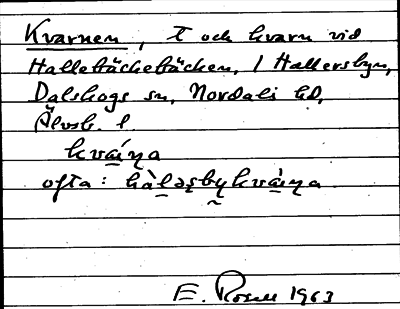 Kvarnen, t och kvarn vid
Hallebäckebäcken, i Hallersbyn,
Dalskogs sn, Nordals hd,
Älvsb. l.
kvá̱ṇa
ofta: hàlǝṣby̰kvà̱ṇa
E. Rosell 1963